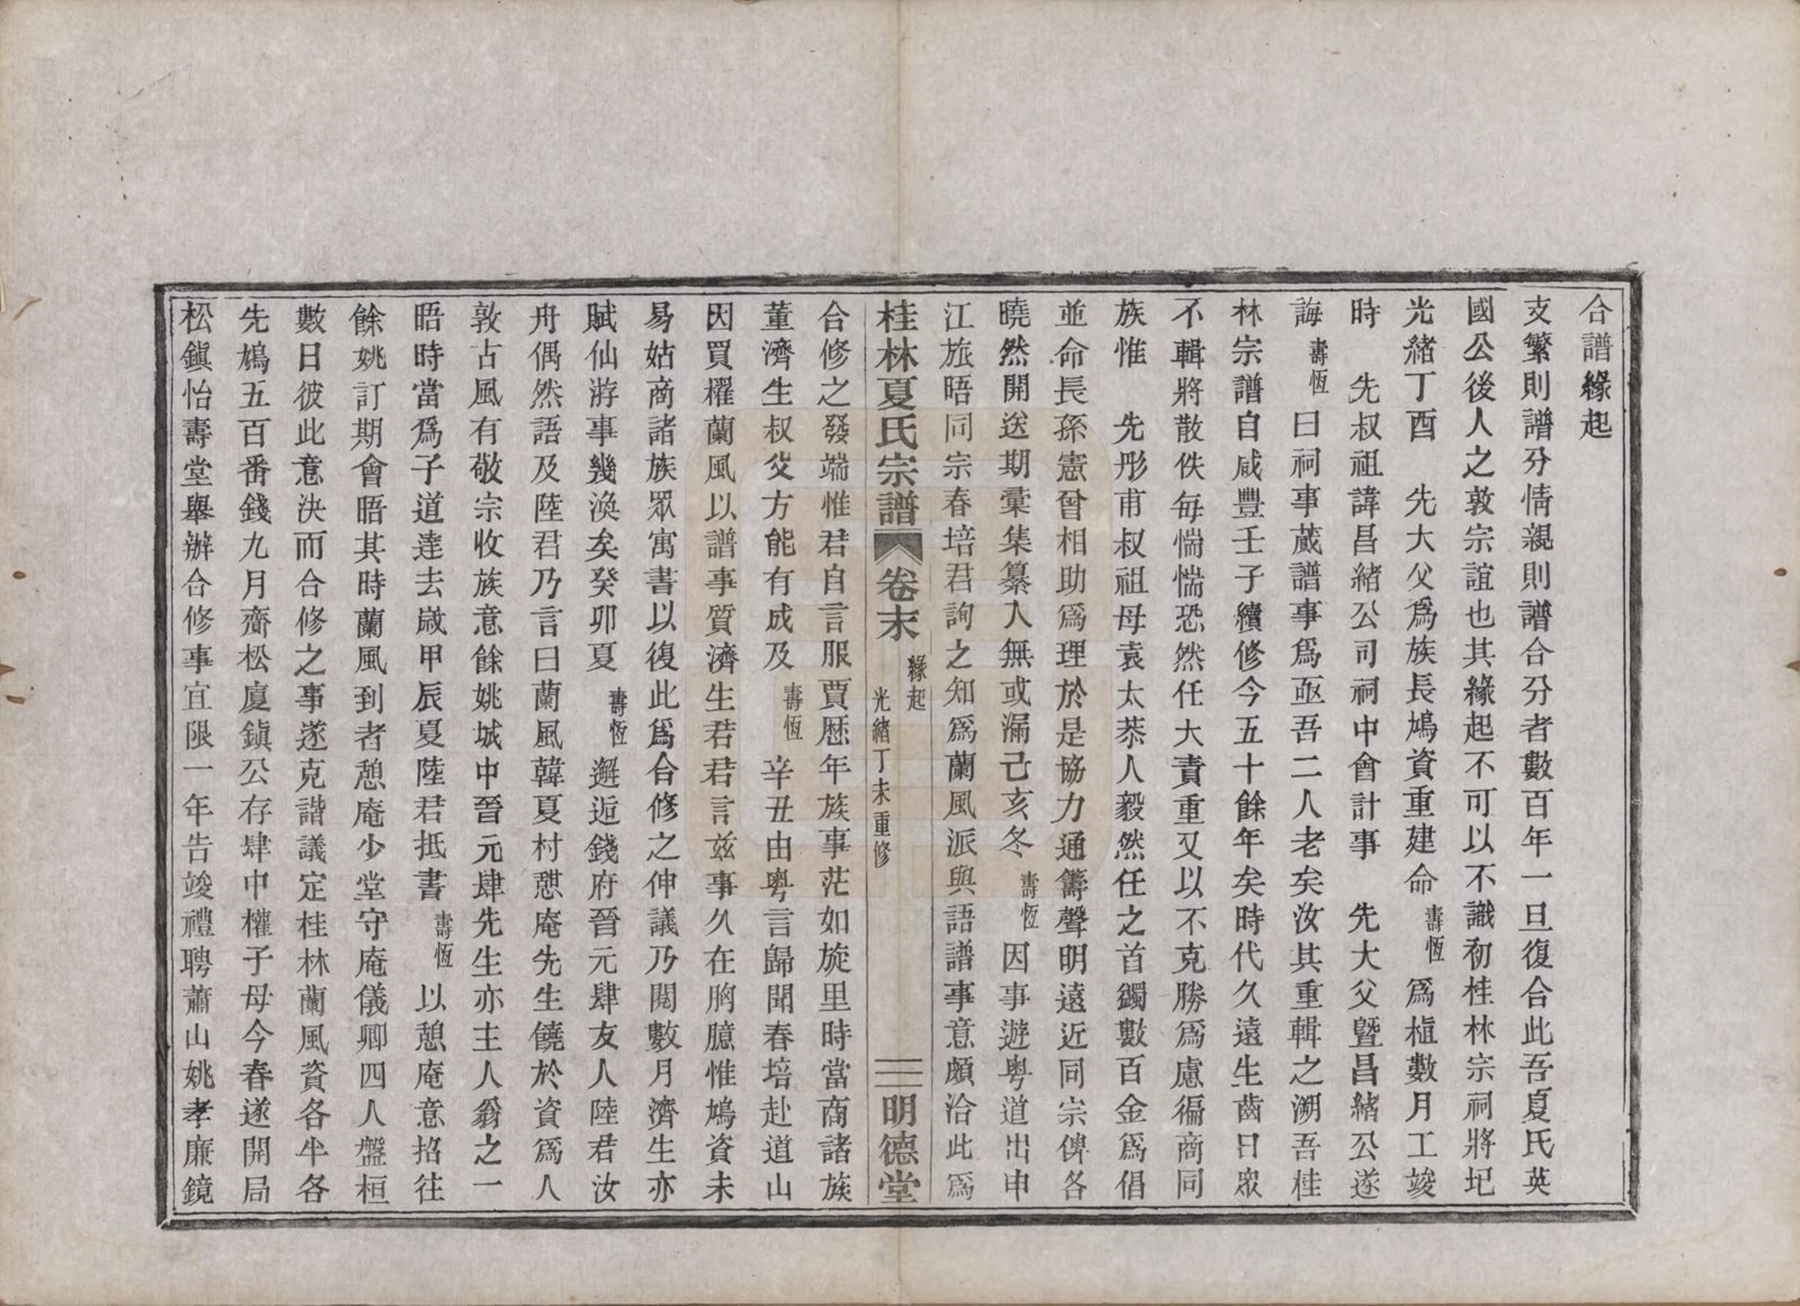 合譜緣起
支繁則譜分情親則譜合分者數百年一旦復合此吾夏氏英
國公後人之敦宗誼也其緣起不可以不識初桂林宗祠將圮
光緒丁酉 先大父爲族長鳩資重建命壽恆爲植數月工竣
時 先叔祖諱昌緒公司祠中會計事 先大父曁昌緒公遂
誨壽恆曰祠事蕆譜事爲亟吾二人老矣汝其重輯之溯吾桂
林宗譜自咸豐壬子續修今五十餘年矣時代久遠生齒日眾
不輯將散佚每惴惴恐然任大責重又以不克勝爲慮徧商同
族惟 先彤甫叔祖母袁太恭人毅然任之首蠲數百金爲倡
並命長孫憲曾相助爲理於是協力通籌聲明遠近同宗俾各
曉然開送期彙集纂入無或漏己亥冬壽恆因事遊粵道出申
江旅晤同宗春培君詢之知爲蘭風派與語譜事意頗洽此爲
桂林夏氏宗譜 卷末 緣起 光緒丁未重修 三 明德堂
合修之發端惟君自言服賈歷年族事茫如旋里時當商諸族
董濟生叔父方能有成及壽恆辛丑由粵言歸聞春培赴道山
因買櫂蘭風以譜事質濟生君君言茲事久在胸臆惟鳩資未
易姑商諸族眾寓書以復此爲合修之伸議乃閱數月濟生亦
賦仙游事幾渙矣癸卯夏壽恆邂逅錢府晉元肆友人陸君汝
舟偶然語及陸君乃言曰蘭風韓夏村憇庵先生饒於資爲人
敦古風有敬宗收族意餘姚城中晉元肆先生亦主人翁之一
晤時當爲子道達去歲甲辰夏陸君抵書壽恆以憩庵意招往
餘姚訂期會晤其時蘭風到者憩庵少堂守庵儀卿四人盤桓
數日彼此意決而合修之事遂克諧議定桂林蘭風資各半各
先鳩五百番錢九月齎松廈鎭公存肆中權子母今春遂開局
松鎭怡壽堂舉辦合修事宜限一年告竣禮聘蕭山姚孝廉鏡